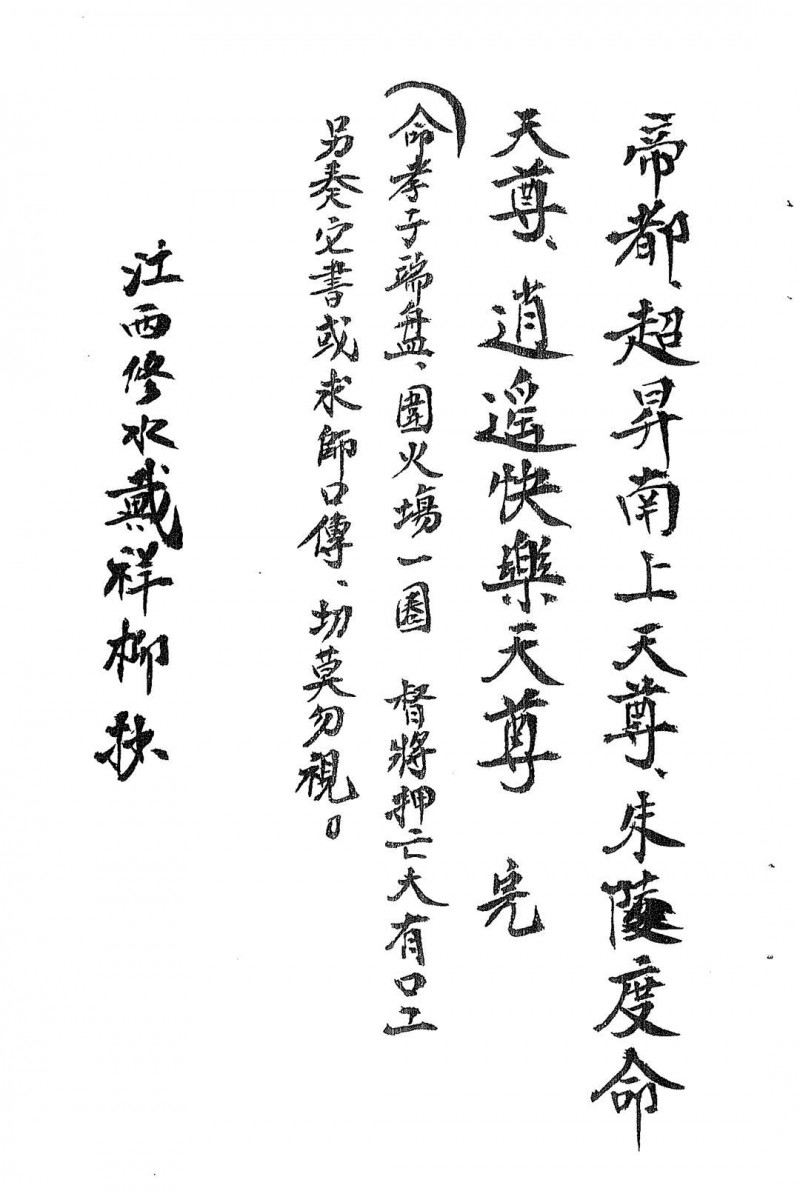 帝都、超昇南上天尊、朱陵度命
天尊、逍遥快樂天尊 完
命孝子端盘、圍火場一圈 督將押亡大有口工
另奏它書或求師口傳、切莫勿視。
江西修水戴祥柳抄